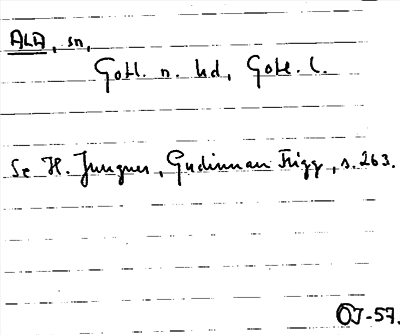 ALA, sn,
Gotl. n. hd, Gotl. l.
Se H. Jungner, Gudinnan Frigg, s. 263.
OJ-57.